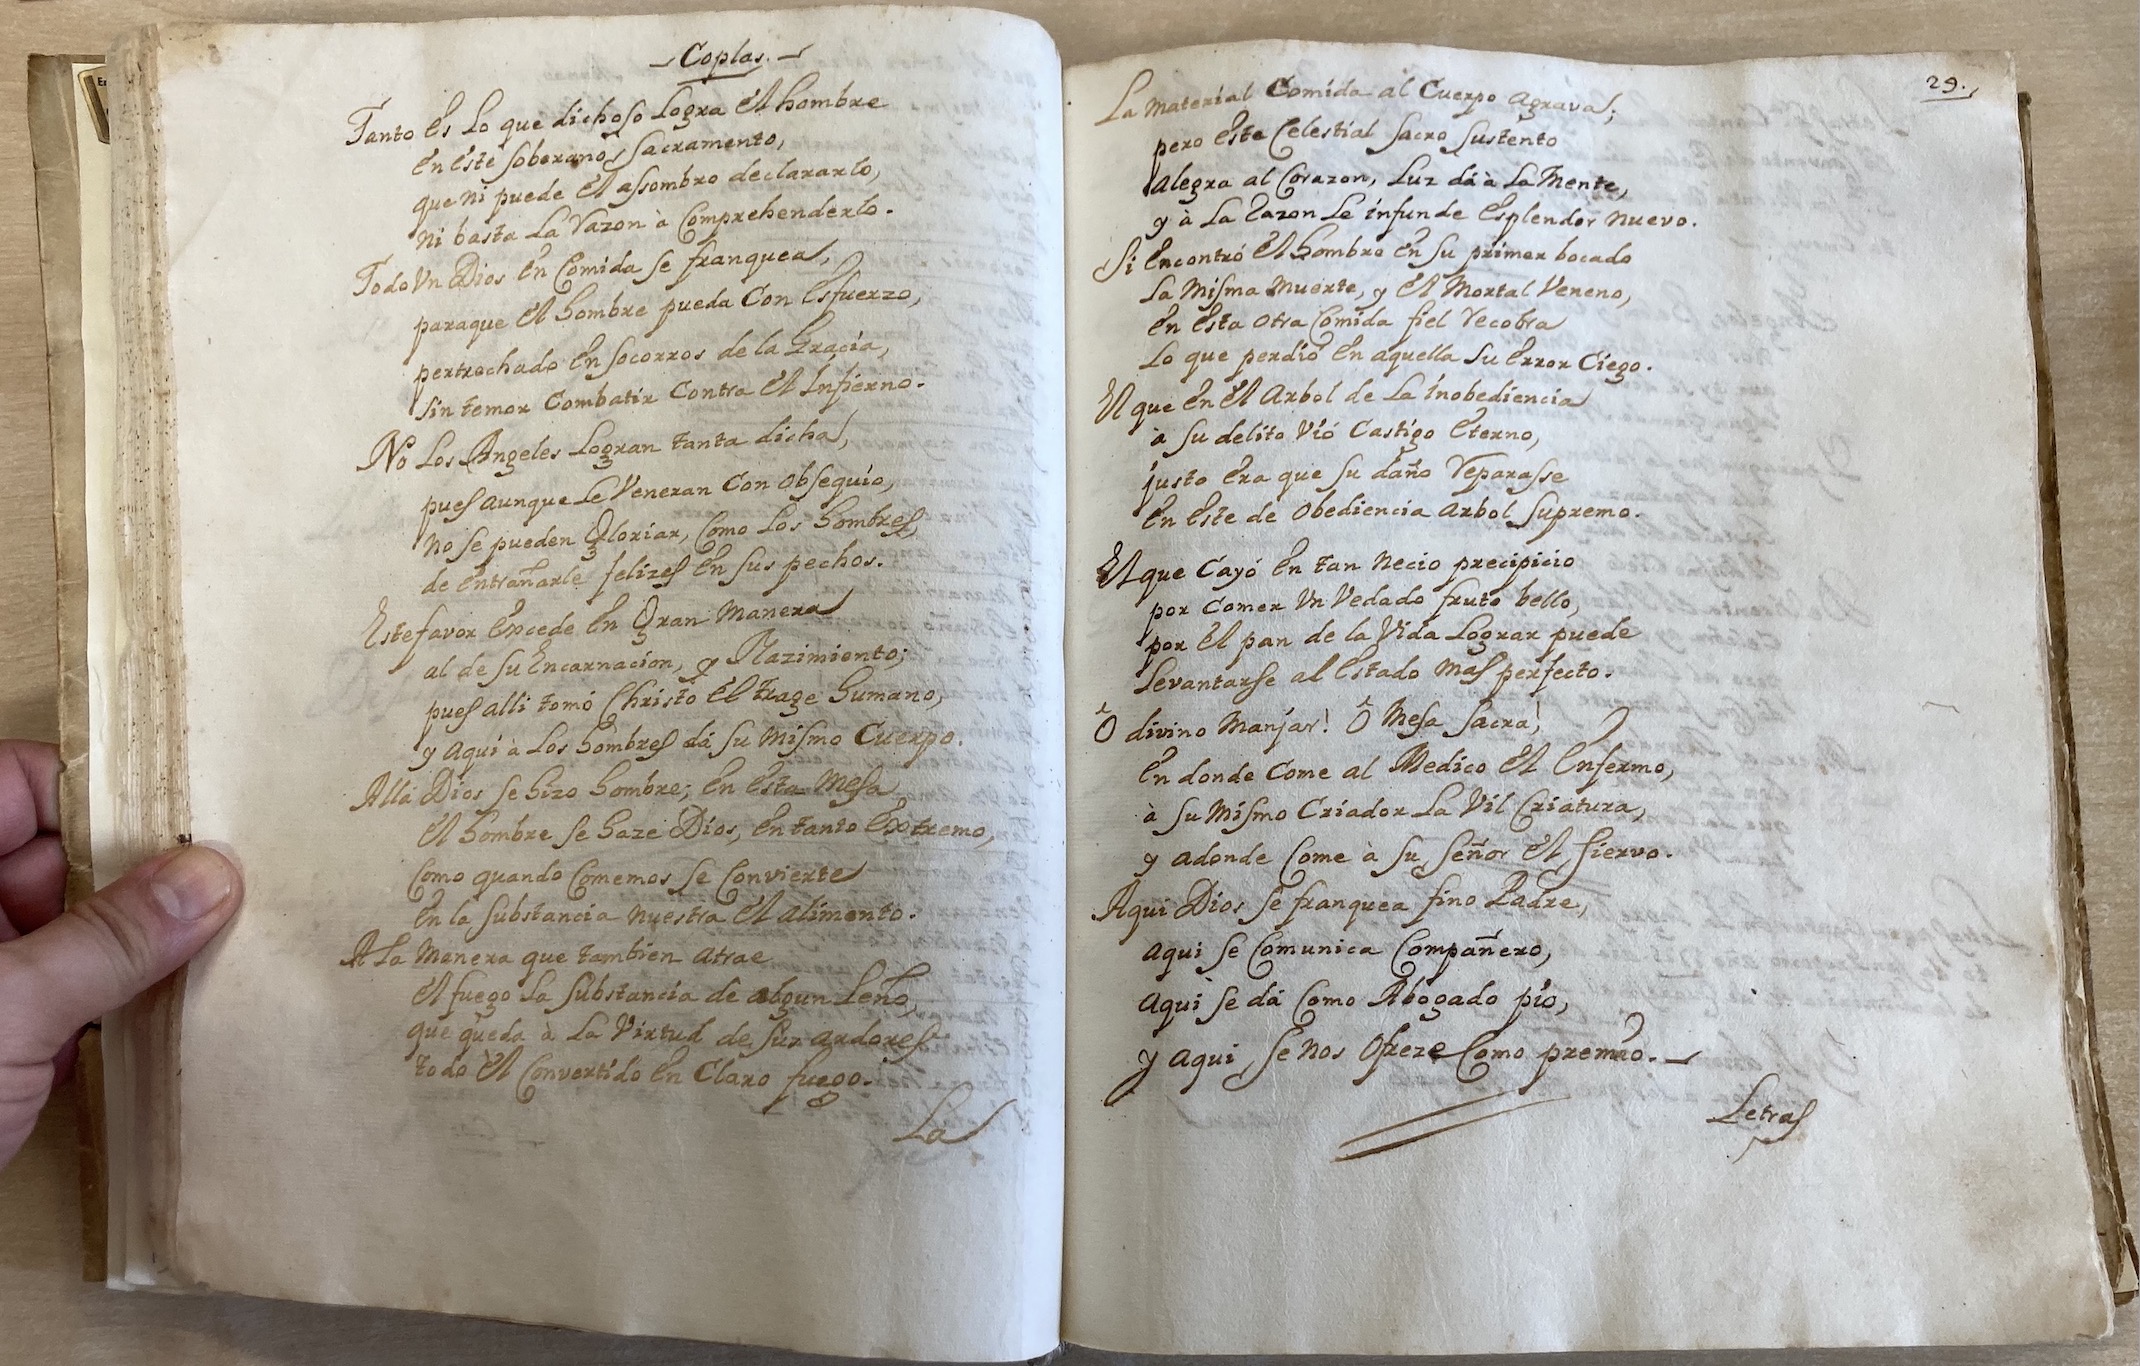 Coplas.
Tanto es lo que dichoso logra el hombre
en este soberano sacramento,
que ni puede el assombro declararlo,
ni basta la razon à comprehenderlo.
Todo Vn Dios en comida se franquea,
paraque el hombre pueda con esfuerzo,
pertrechado en socorros de la Gracia,
sin temor combatir contra el Infierno.
No los Angeles logran tanta dicha,
pues aunque le Veneran con obsequio,
no se pueden Gloriar, como los hombres,
de entrañarle felizes en sus pechos.
Este favor excede en Gran manera
al de su Encarnacion, y Nazimiento;
pues alli tomó Christo el trage humano,
y aqui à los hombres dá su mismo Cuerpo.
Allá Dios se hizo hombre; en esta mesa
el hombre se haze Dios, en tanto extremo,
como quando comemos se convierte
en la substancia nuestra el alimento.
A la manera que tambien atrae
el fuego la substancia de algun leño,
que queda à la Virtud de sus ardores
todo èl convertido en claro fuego.
La
29.
La material comida al cuerpo agrava;
pero este celestial sacro sustento
alegra al corazon, luz dá à la mente,
y à la razon le infunde esplendor nuevo.
Si encontró el hombre en su primer bocado
la misma muerte, y el mortal Veneno,
en esta otra comida fiel recobra
lo que perdió en aquella su error ciego.
El que en el arbol de la inobediencia
à su delito vió castigo eterno,
justo era que su daño reparasse
en este de obediencia arbol supremo.
El que cayó en tan necio precipicio
por comer Vn Vedado fruto bello,
por el pan de la Vida lograr puede
levantarse al estado mas perfecto.
Ô divino manjar! Ô mesa sacra!
en donde come al Medico el enfermo,
à su mismo Criador la Vil criatura,
y adonde come à su señor el siervo.
Aqui Dios se franquea fino Padre,
aqui se comunica compañero,
aqui se dá como Abogado pio,
y aqui se nos ofreze como premio.
Letras